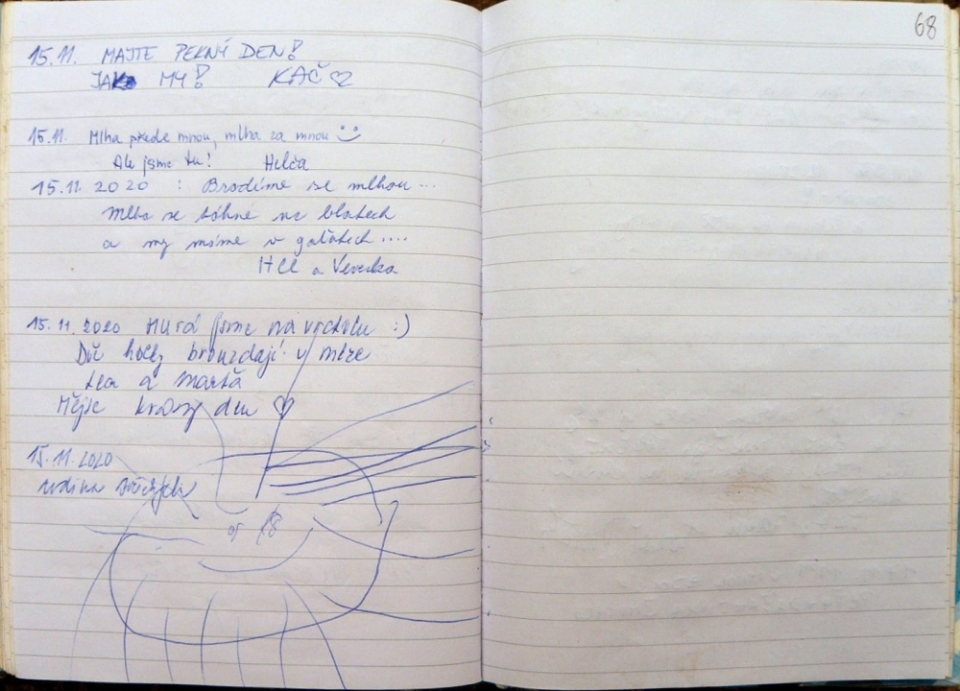 68
15.11. MAJTE PEKNÝ DEN!
JAKO MY! KAČ ♡
15.11. Mlha přede mnou, mlha za mnou :)
Ale jsme tu! Helča
15.11.2020 : Brodíme se mlhou...
Mlha se táhne na blatech
a my máme v gaťatech....
HCE a Veverka
15.11.2020 Hurá jsme na vrcholu :)
Dvě holky brouzdají v mlze
Lea a Marťa
Mějte krásný den ♡
15.11.2020
rodina